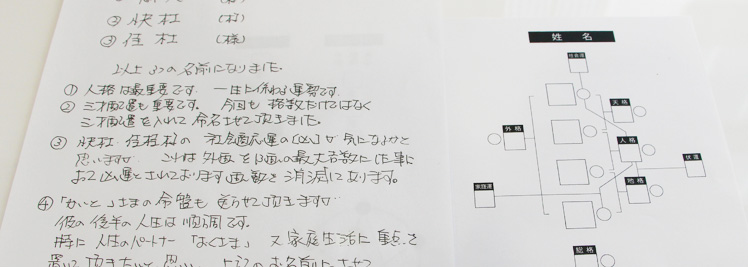 ② 快杜 (様)
③ 佳杜 (様)
以上3つの名前になりました。
① 人格は最重要です。一生に係わる運勢です。
② 三才配置も重要です。今回も格数だけではなく
三才配置を入れて命名させて頂きました。
③ 快杜、佳杜様の社会適応運の[凶]が気になるかと
思いますが これは外画を の最大吉数にした事に
おて凶運とされております画数を消滅しております。
④ 「かいと」さまの命盤も させて頂きますが
彼の後半の人生は順調です。
特に人生のパートナー「おくさま」又家庭生活に重点を
置いて頂きたいと思い、 のお名前にさせて
姓名
社会運
天格
外格
人格
状運
家庭運
地格
総格